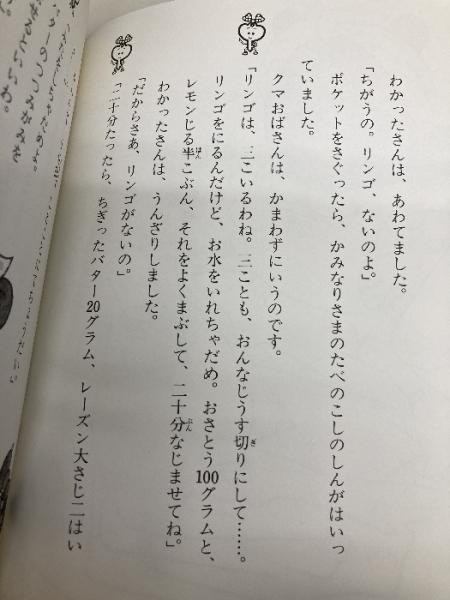 わかったさんは、あわてました。
「ちがうの。リンゴ、ないのよ。」
ポケットをさぐったら、かみなりさまのたべのこしのしんがはいっ
ていました。
クマおばさんは、かまわずにいうのです。
「リンゴは、三こいるわね。三ことも、おんなじうす切りにして……。
リンゴをにるんだけど、お水をいれちゃだめ。おさとう100グラムと、
レモンじる半こぶん、それをよくまぶして、二十分なじませてね」
わかったさんは、うんざりしました。
「だからさあ、リンゴがないの」。
「二十分たったら、ちぎったバター20グラム、レーズン大さじ二はい